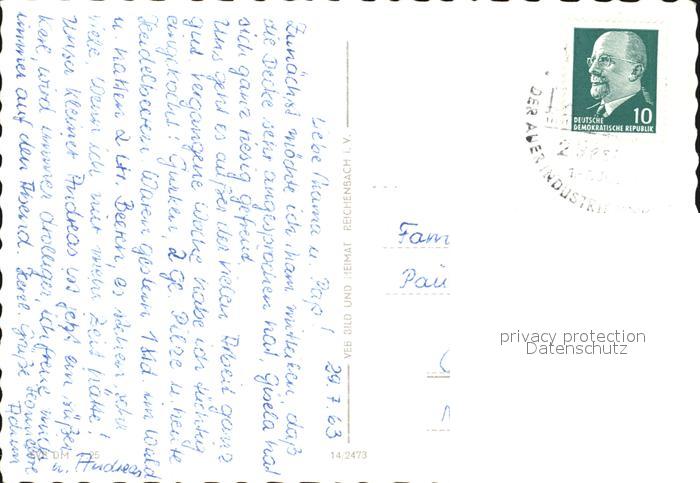 Liebe Mama u. Paps!
29.7.63
Zunächst möchte ich Euch mitteilen, daß
die Decke sehr angesprochen hat, Gisela hat
sich ganz riesig gefreut.
Uns geht es außer der vielen Arbeit ganz
gut. Vergangene Woche habe ich tüchtig
eingekocht! Gurken, 2 Gl. Pilze u. heute
Heidelbeeren. Waren gestern 1 Std. im Wald
u. hatten 2 Ltr. Beeren, es stehen sehr
viele. Wenn ich nur mehr Zeit hätte!
Unser kleiner Andreas ist jetzt ein süßer
Kerl, wird immer drolliger, ich freue mich
immer auf den Abend. Herzl. Grüße
u. Andreas
VEB BILD UND HEIMAT REICHENBACH I. V.
DM 0,25
14/2473
Fam
Pau
10
DEUTSCHE
DEMOKRATISCHE REPUBLIK
DER AUER INDUSTRIE
privacy protection
Datenschutz